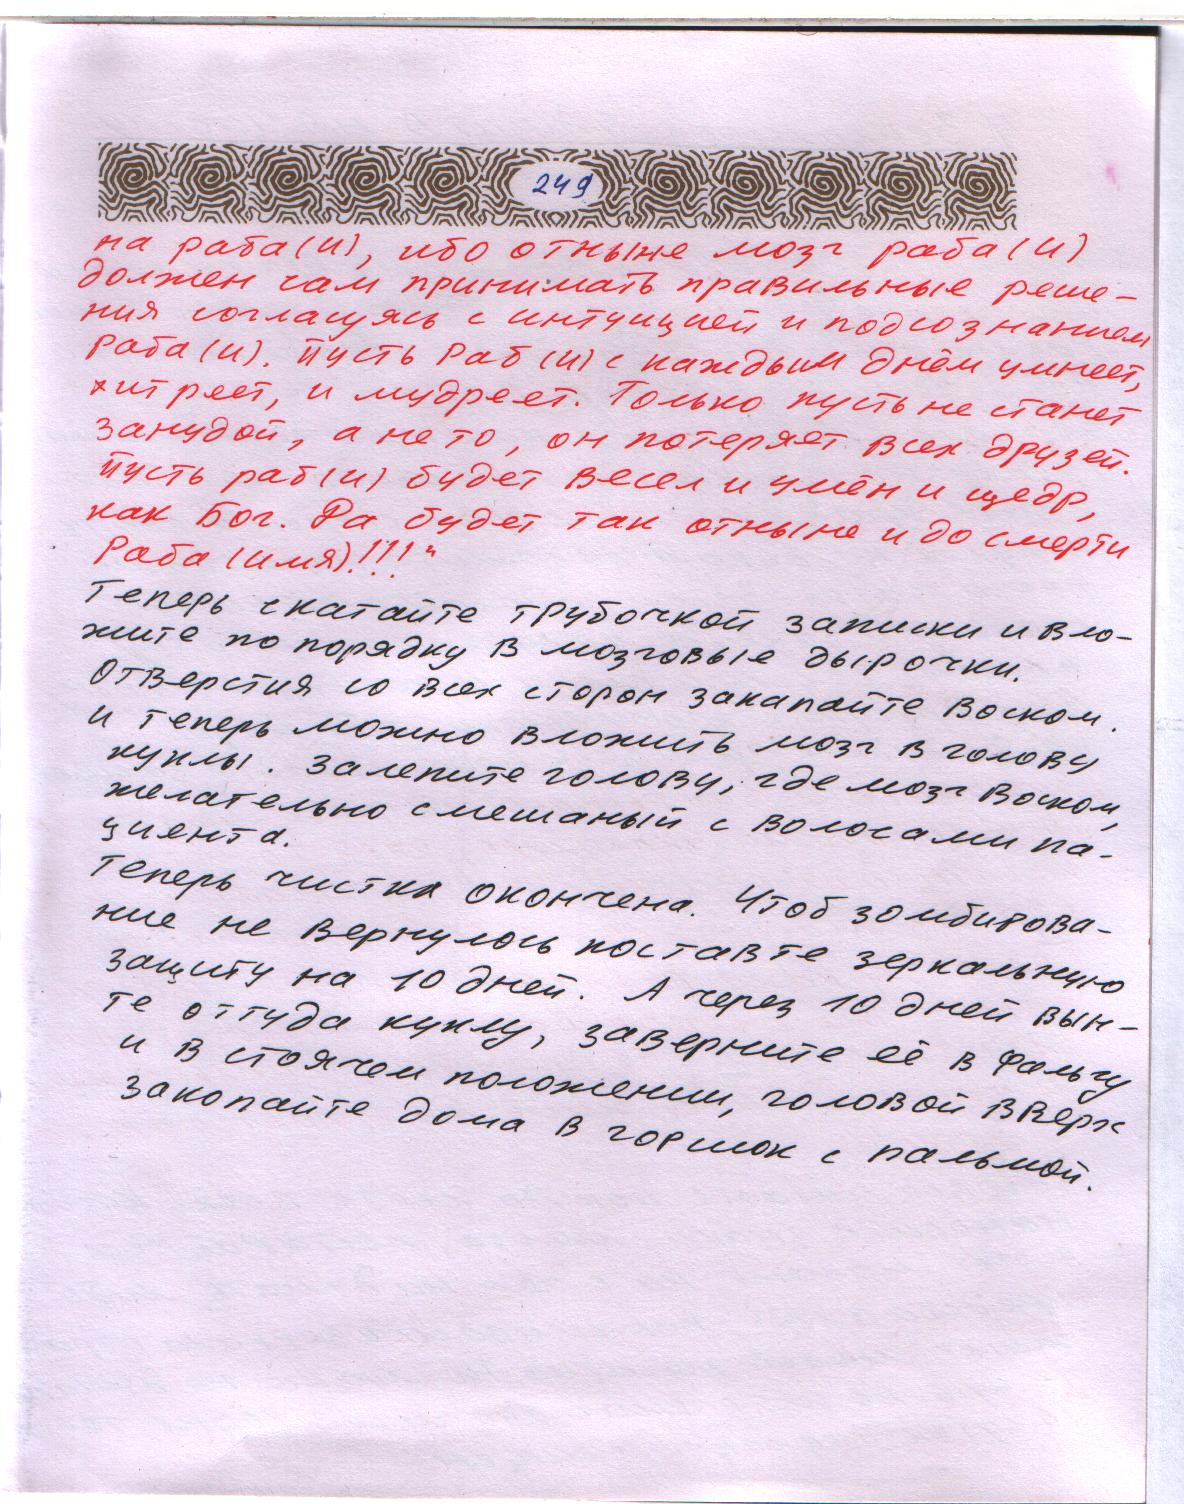 249
на раба(И), ибо отныне мозг раба(И)
должен сам принимать правильные реше-
ния соглащуясь с интуицией и подсознанием
раба(И). Пусть Раб(И) с каждым днём умнеет,
хитреет, и мудреет. Только пусть не станет
занудой, а не то, он потеряет всех друзей.
Пусть раб(И) будет весел и умён и щедр,
как Бог. Да будет так отныне и до смерти
Раба (имя)!!!"
Теперь скатайте трубочкой записки и вло-
жите по порядку в мозговые дырочки.
Отверстия со всех сторон закапайте воском.
И теперь можно вложить мозг в голову
куклы. Залепите голову, где мозг воском,
желательно смешаный с волосами па-
циента.
Теперь чистка окончена. Чтоб зомбирова-
ние не вернулось поставте зеркальную
защиту на 10 дней. А через 10 дней вын-
те оттуда куклу, заверните её в фольгу
и в стоячем положении, головой вверх
закопайте дома в горшок с пальмой.